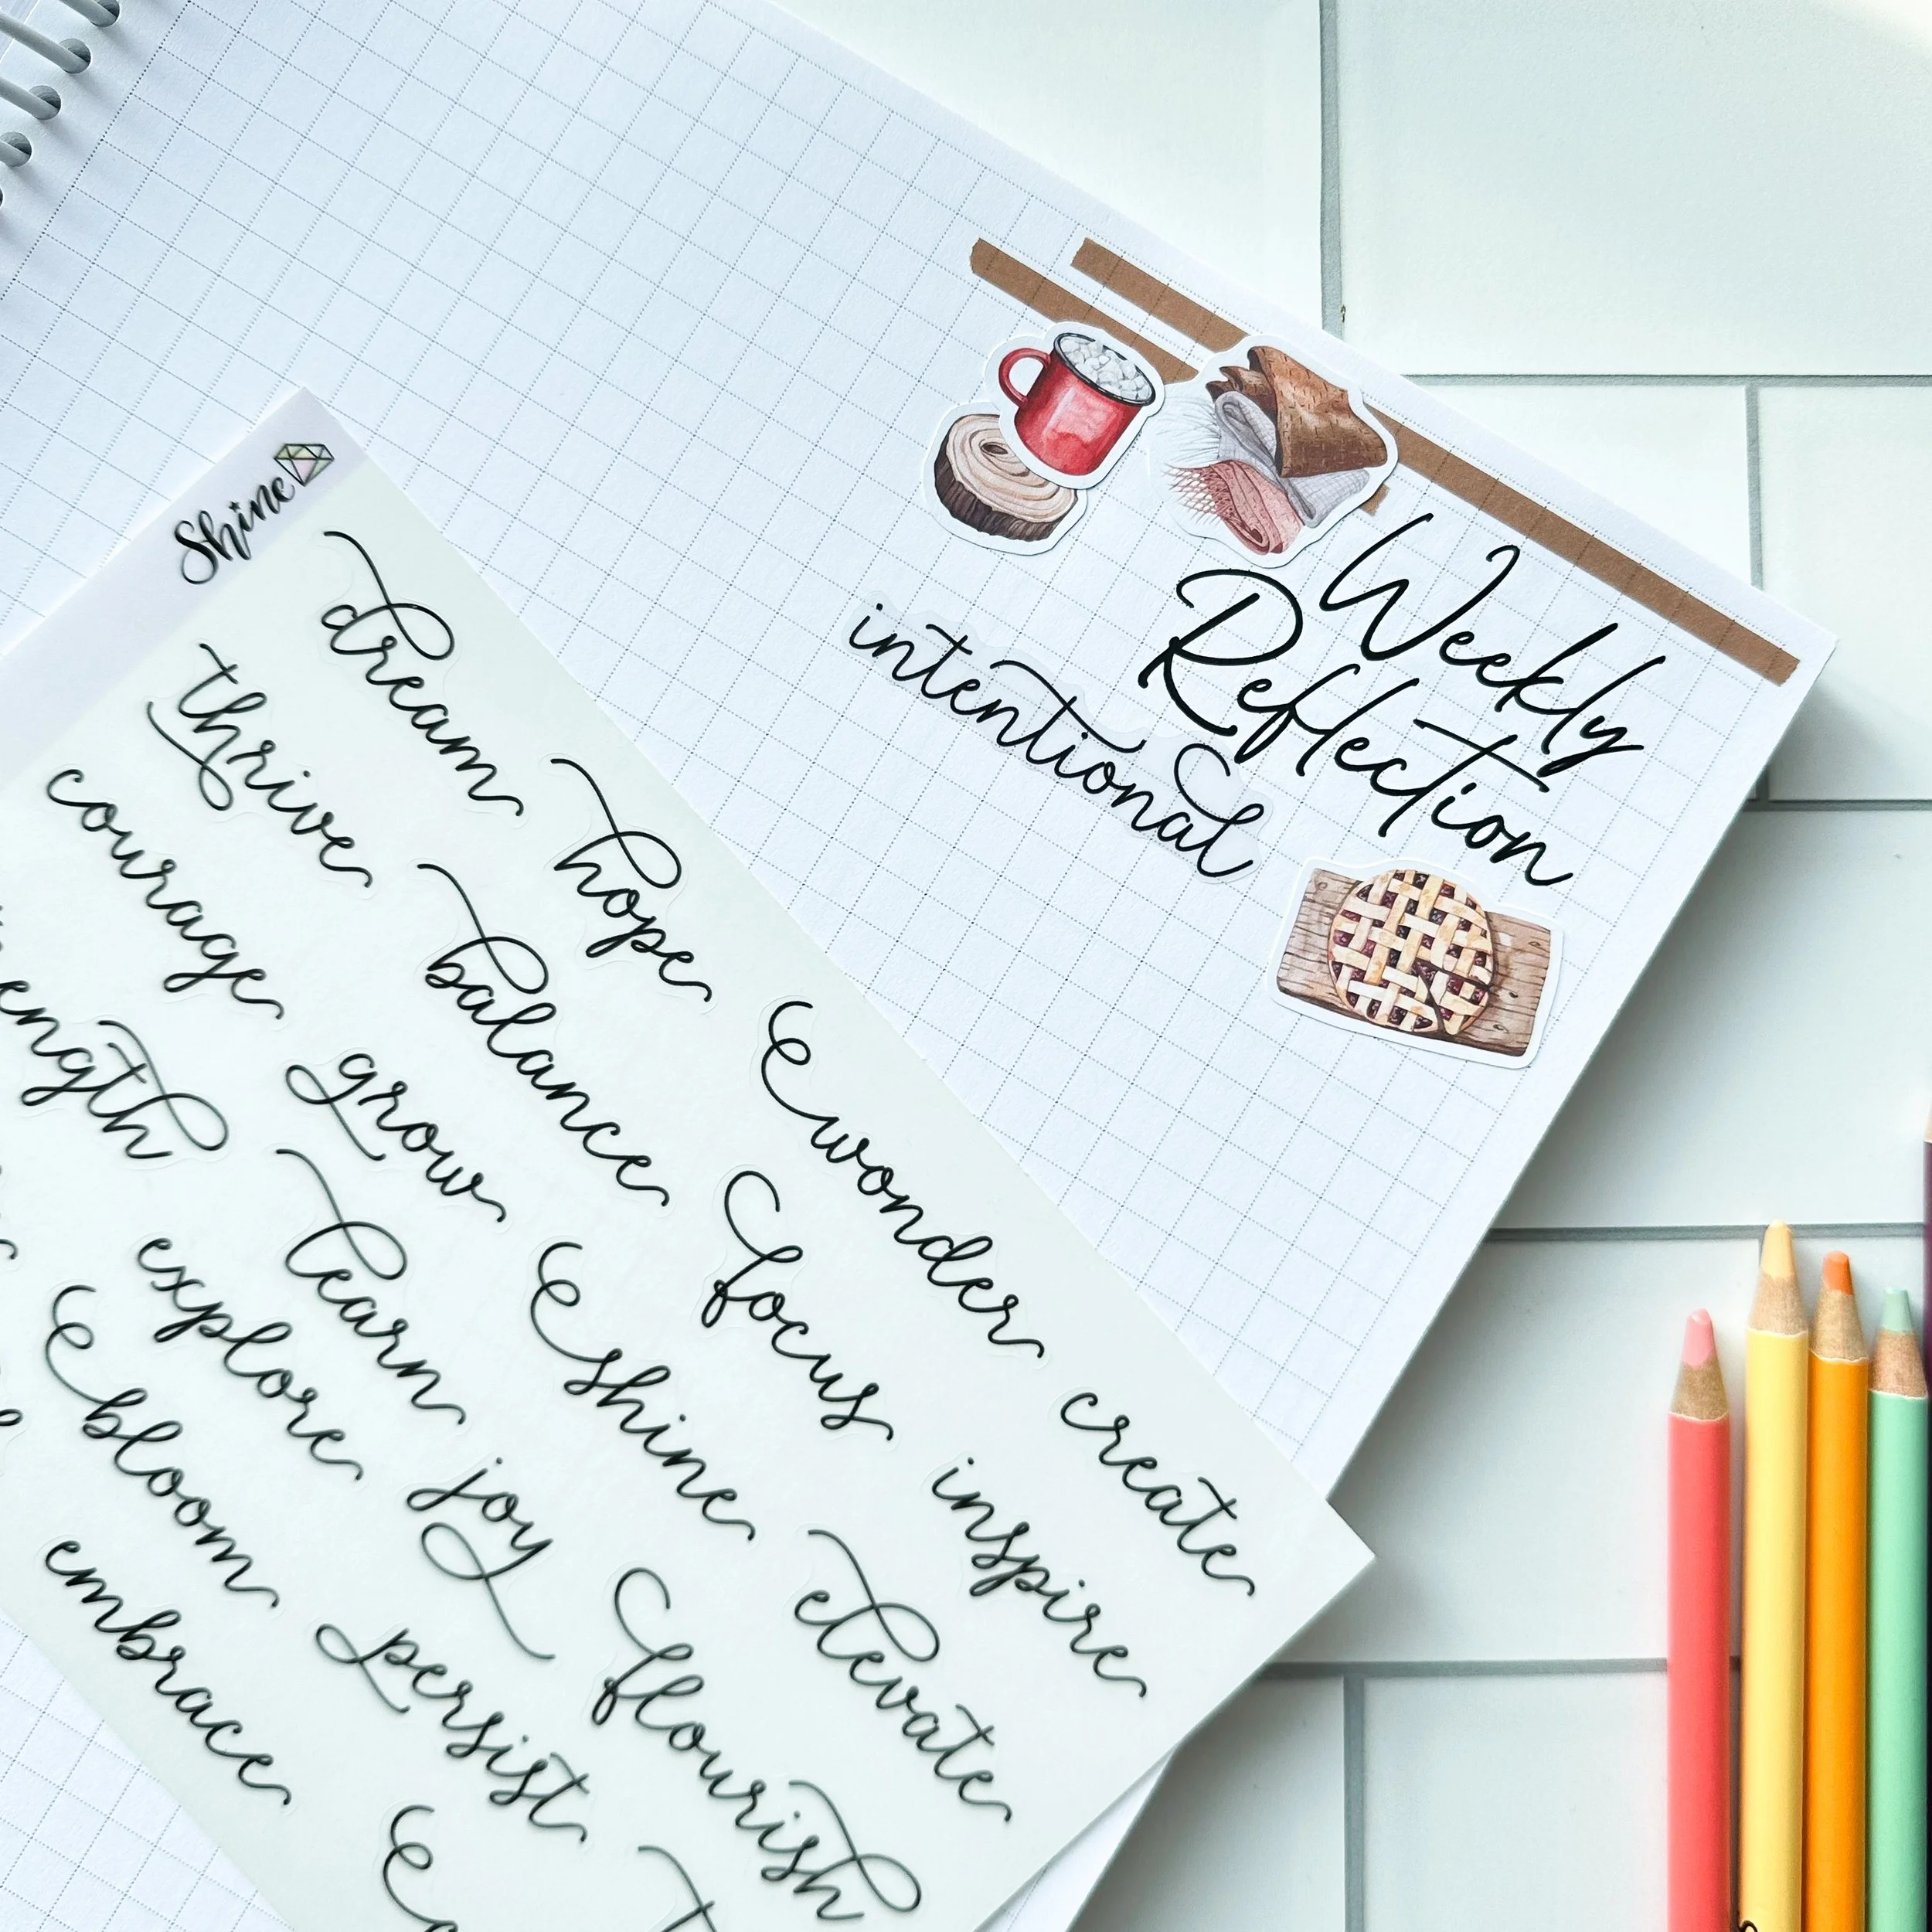 Weekly
Reflection
intentional
Shine
dream
hope
wonder
create
thrive
balance
focus
inspire
courage
grow
shine
elevate
learn
joy
flourish
explore
persist
bloom
embrace